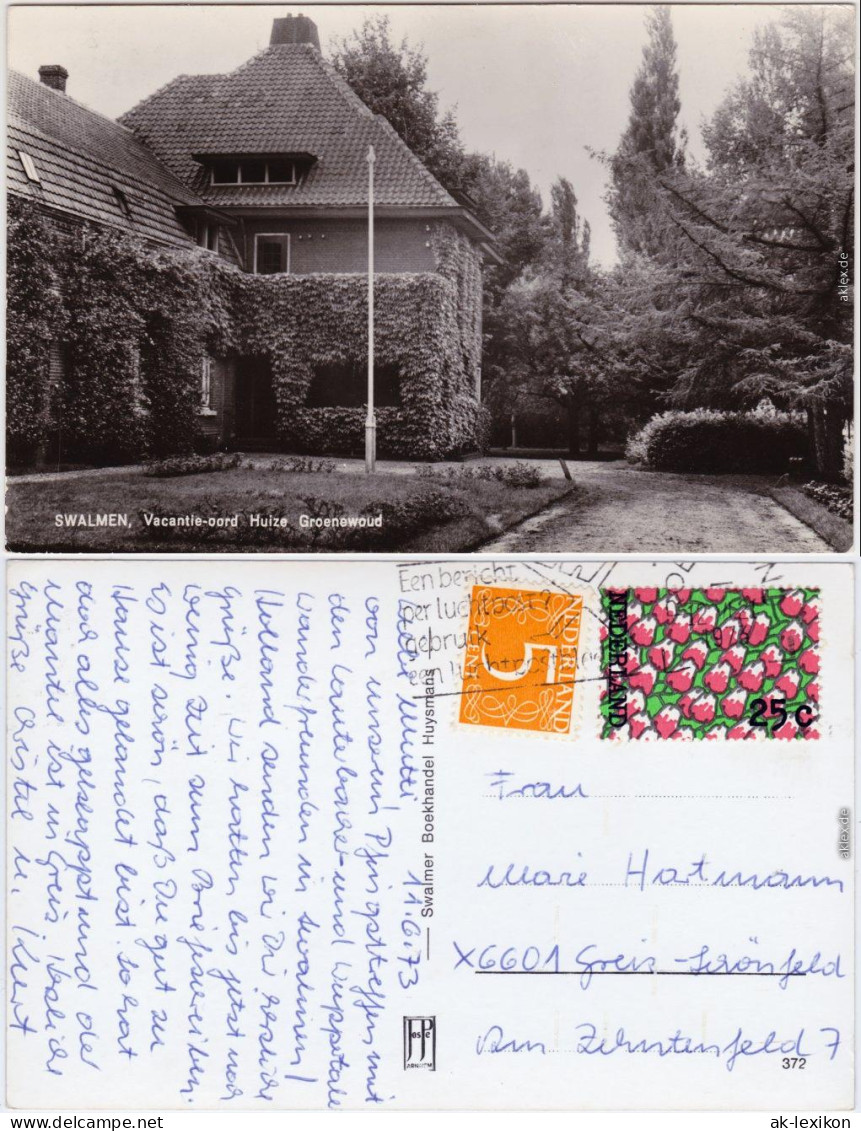 SWALMEN, Vacantie-oord Huize Groenewoud
aklexikon.de
Een bericht
per luchtpost?
gebruik
een luchtpostblad
NEDERLAND
5
CENT
NEDERLAND
25 c
Liebe Mutti! 11.6.73
von unserm Pfingsttreffen mit
den Lauterbacher- und Wuppertaler
Wanderfreunden in Swalmen/
Holland senden wir Dir herzliche
Grüße. Wir hatten bis jetzt noch
wenig Zeit zum Briefschreiben.
Es ist schön, daß Du gut zu
Hause gelandet bist. So hat
doch alles geklappt und der
Mantel ist in Greiz. Herzliche
Grüße Christel u. Kurt
Swalmer Boekhandel Huysmans
JosPé
ARNHEM
Frau
Marie Hartmann
X6601 Greiz-Schönfeld
Am Zehntenfeld 7
372
aklexikon.de
ak-lexikon